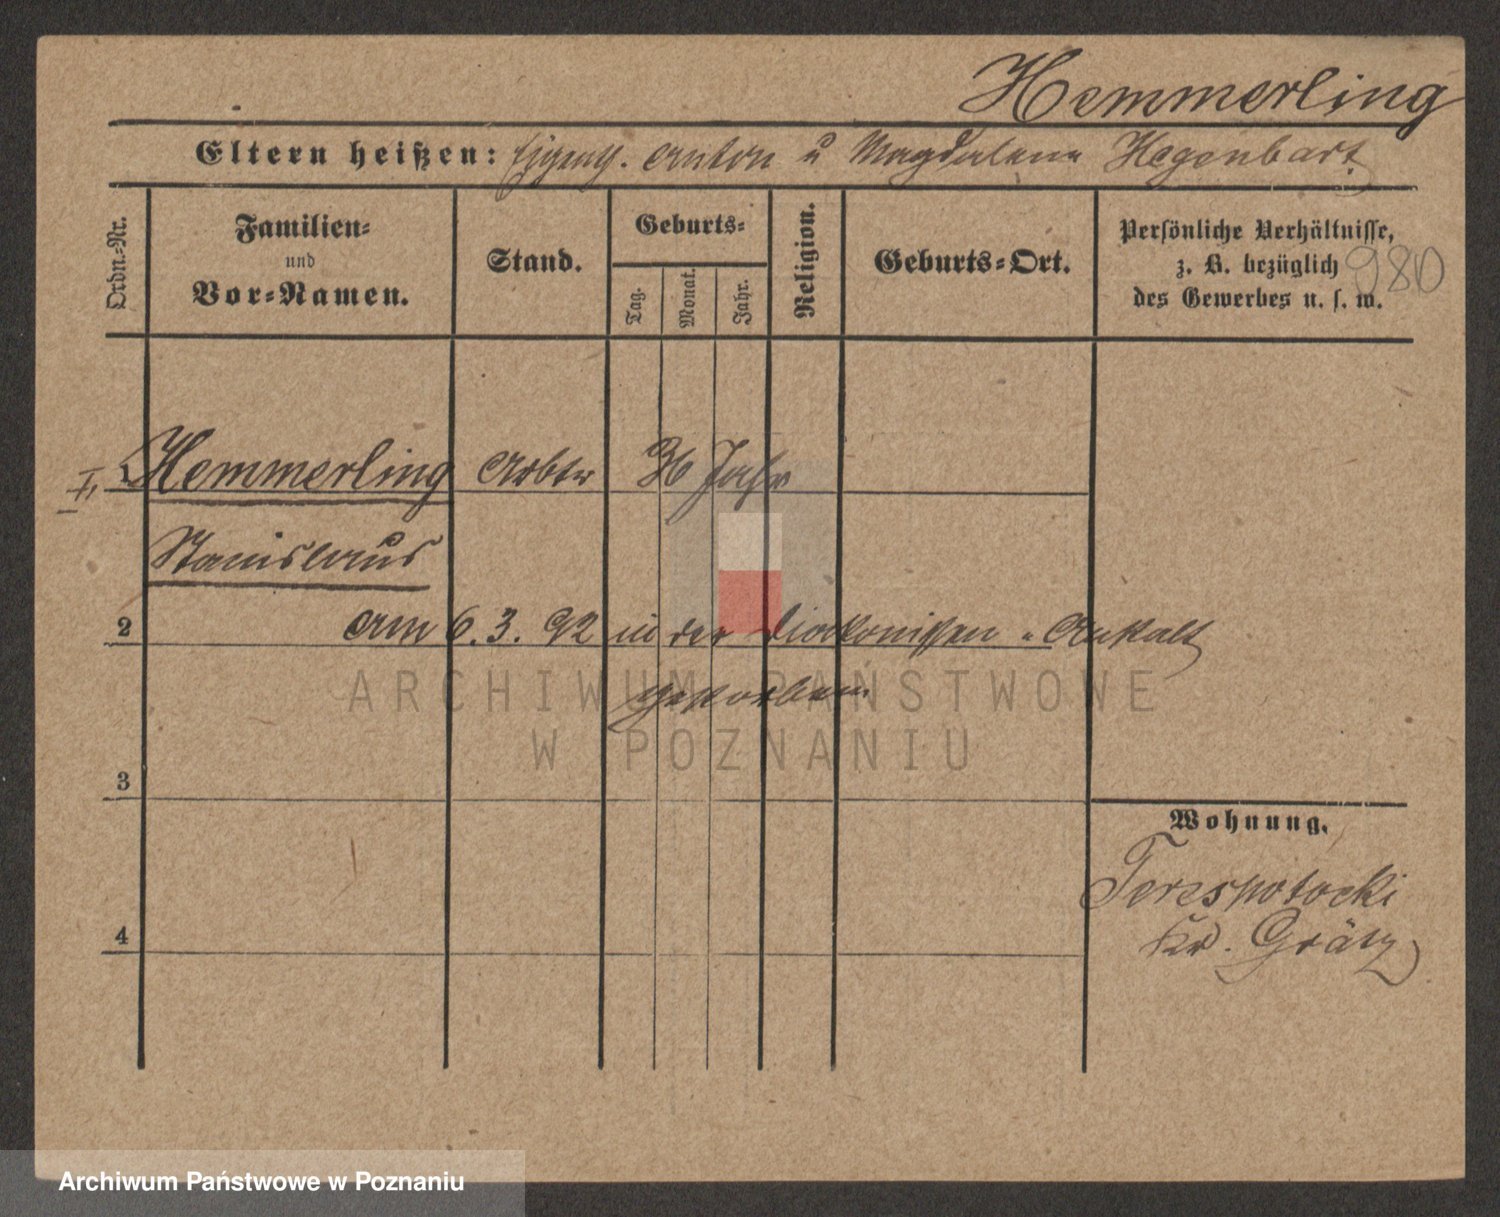 Hemmerling
Eltern heißen: Eigenth. Anton u Magdalena Hegenbart
Ordn.-Nr.
Familien-
und
Vor-Namen.
Stand.
Geburts-
Tag.
Monat.
Jahr.
Religion.
Geburts-Ort.
Persönliche Verhältnisse,
z. B. bezüglich
des Gewerbes u. s. w.
980
I, 1 Hemmerling Arbtr 36 Jahr
Stanislaus
2 am 6. 3. 92 in der Diakonissen-Anstalt
gestorben.
ARCHIWUM PAŃSTWOWE
W POZNANIU
3
Wohnung.
Terespotocki
Kr. Grätz
4
Archiwum Państwowe w Poznaniu